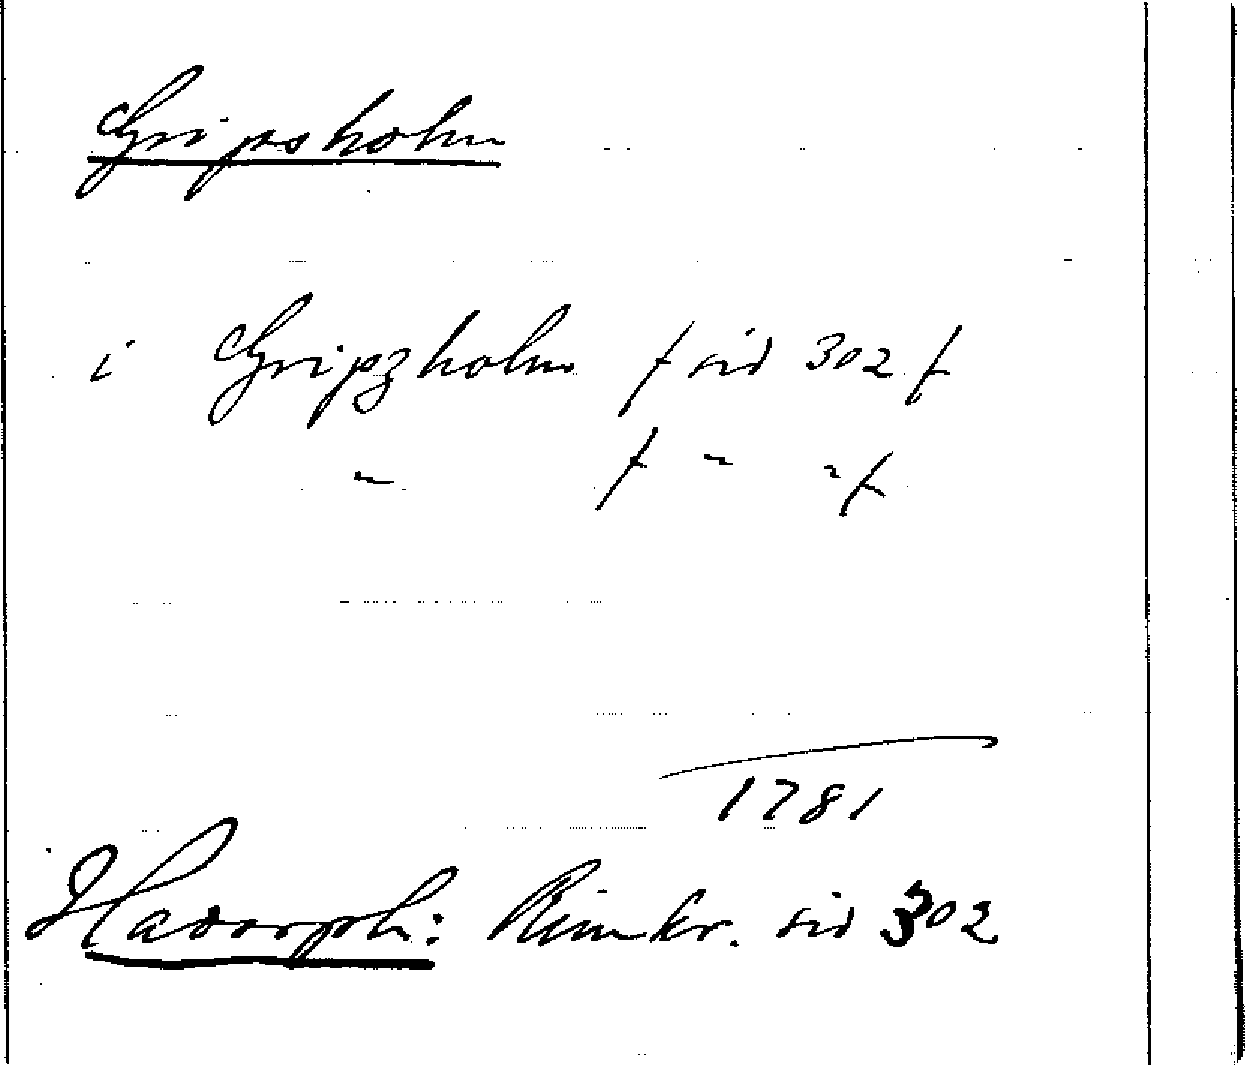 Gripsholm
i Gripzholm / sid 302 /
" / " " /
1781
Hadorph: Rimkr. sid 302